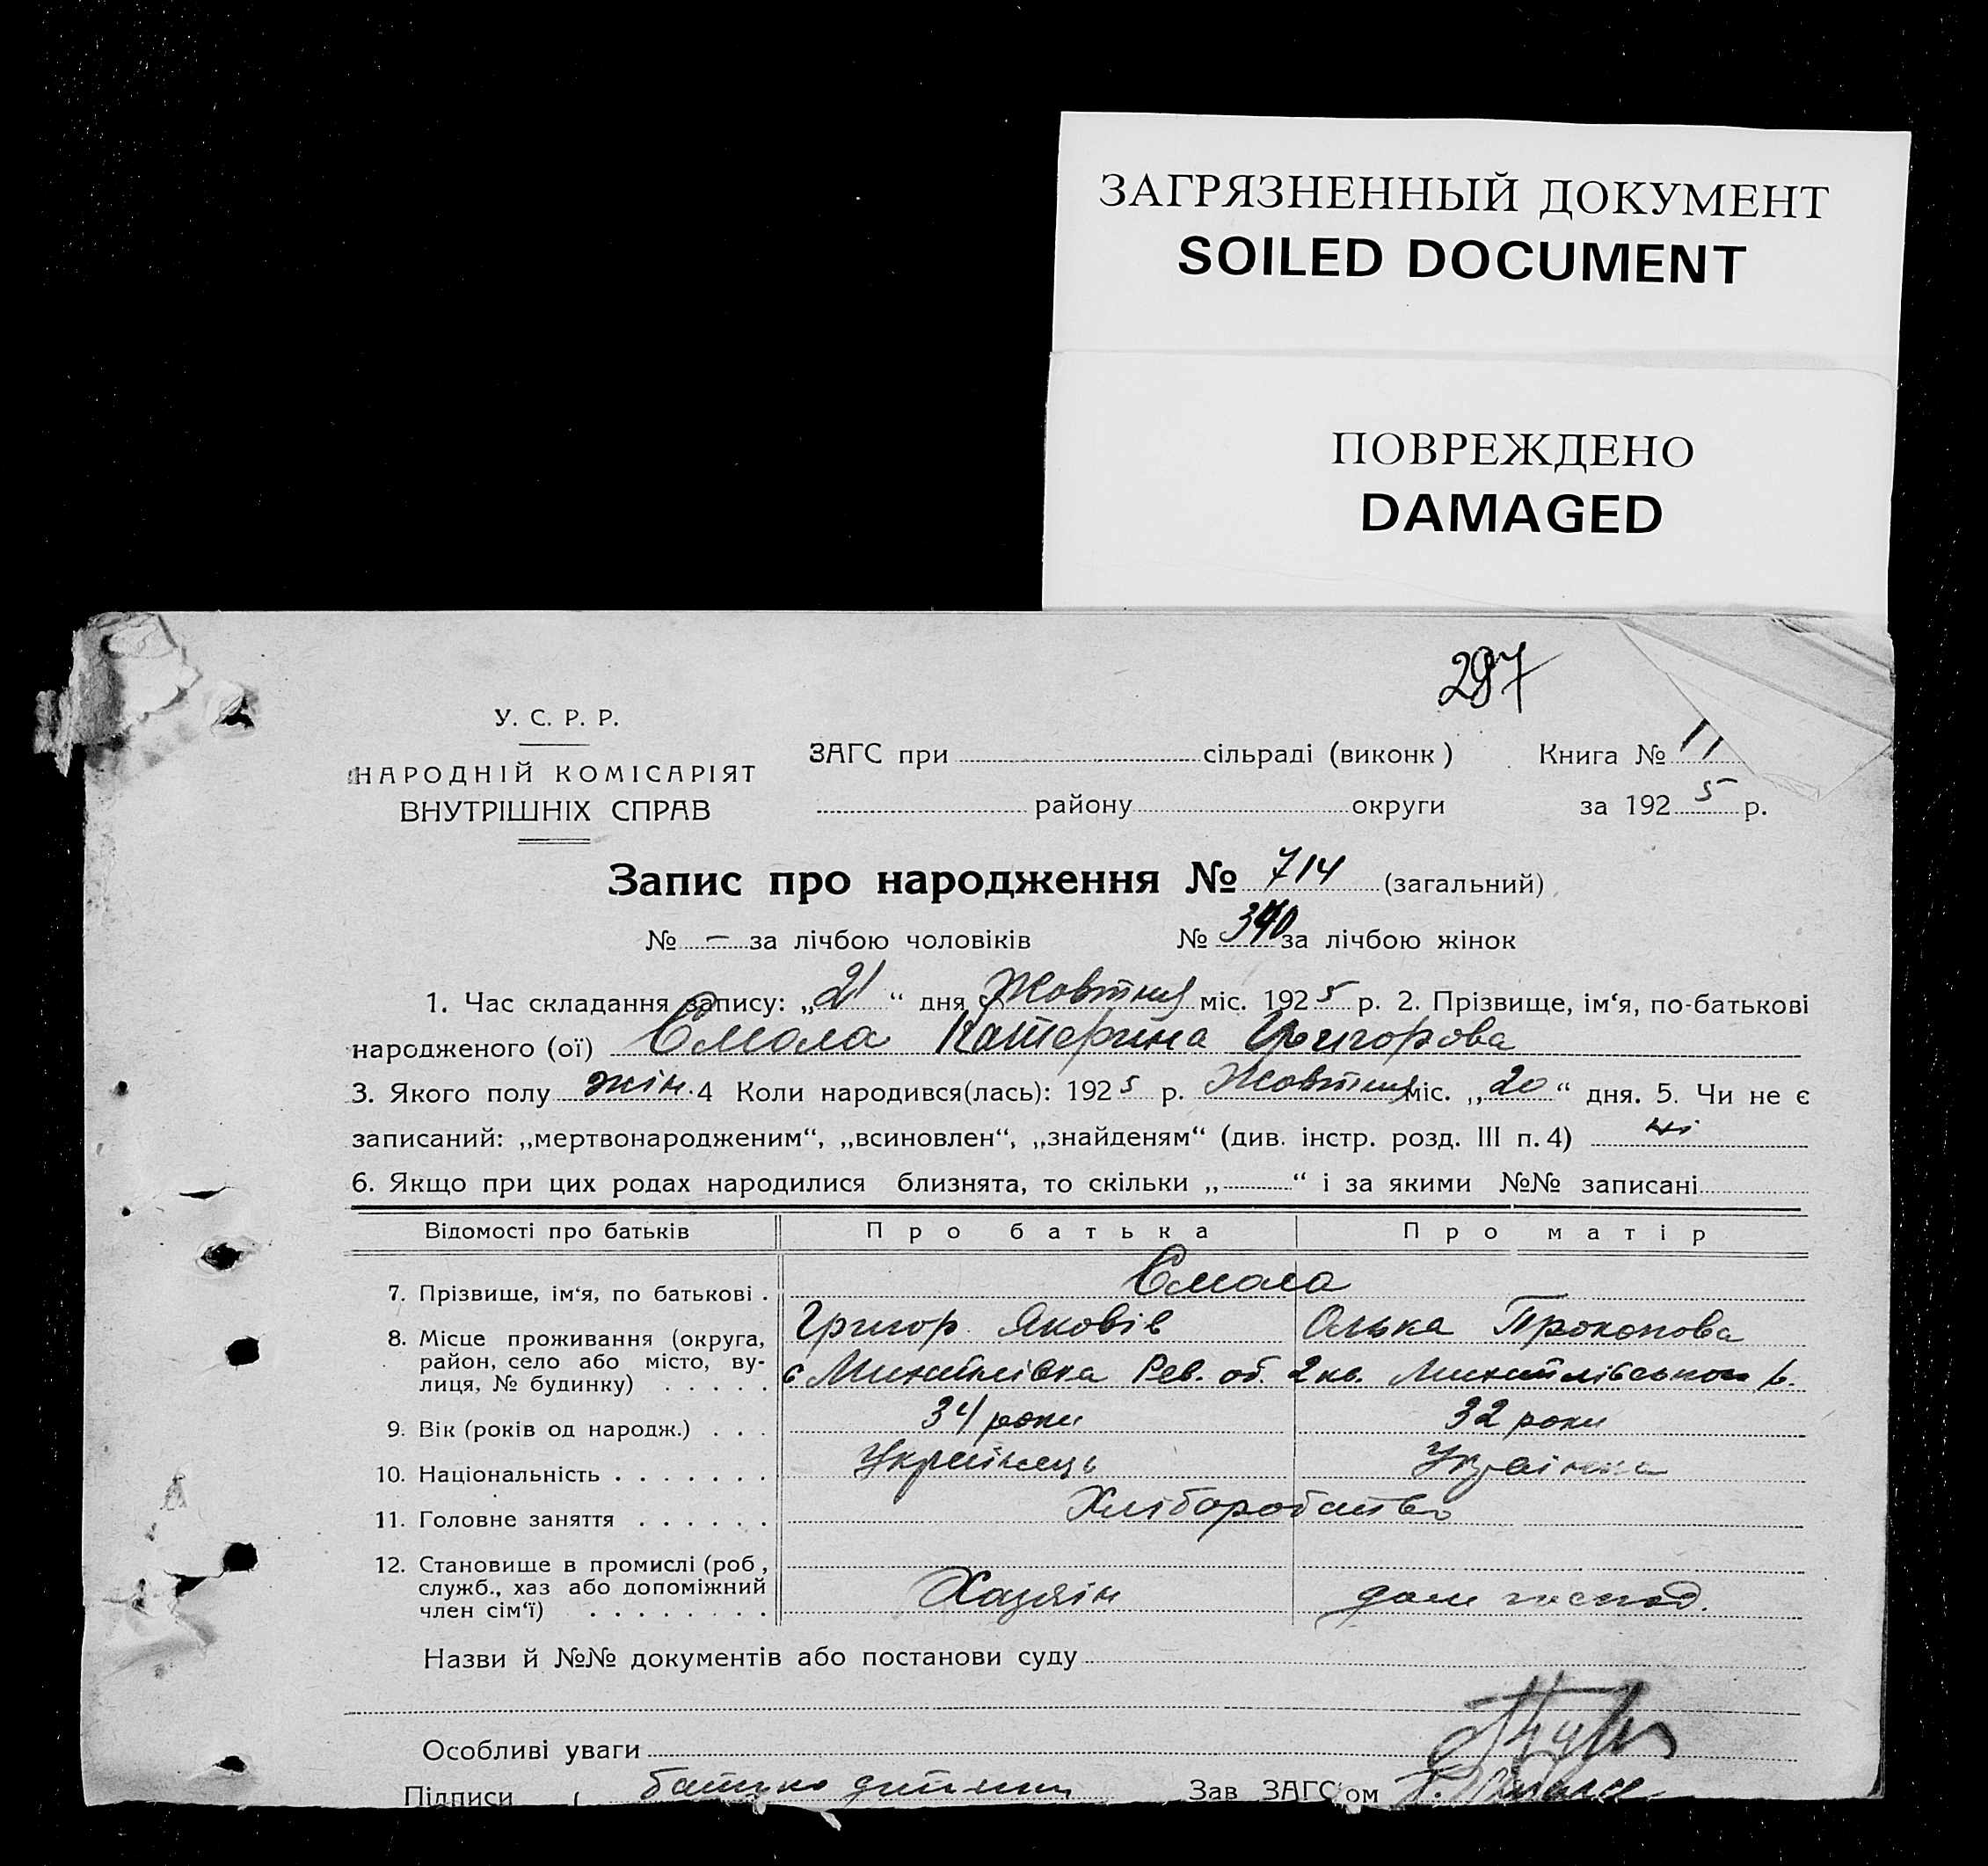 ЗАГРЯЗНЕННЫЙ ДОКУМЕНТ
SOILED DOCUMENT
ПОВРЕЖДЕНО
DAMAGED
297
У. С. Р. Р.
НАРОДНІЙ КОМІСАРІЯТ
ВНУТРІШНІХ СПРАВ
ЗАГС при сільраді (виконк) Книга № 11
району округи за 1925 р.
Запис про народження № 714 (загальний)
№ – за лічбою чоловіків № 340 за лічбою жінок
1. Час складання запису: „21“ дня Жовтня міс. 1925 р. 2. Прізвище, ім‘я, по-батькові
народженого (ої) Смола Катерина Григорова
3. Якого полу жін. 4 Коли народився(лась): 1925 р. Жовтня міс. „20“ дня. 5. Чи не є
записаний: „мертвонародженим“, „всиновлен“, „знайденям“ (див. інстр. розд. III п. 4) ні
6. Якщо при цих родах народилися близнята, то скільки „ “ і за якими №№ записані
Відомості про батьків Про батька Про матір
7. Прізвище, ім‘я, по батькові . Смола
Григор Яковів Олька Прокопова
8. Місце проживання (округа,
район, село або місто, ву-
лиця, № будинку) . . . . . с Михайлівка Рев. об. 2 кв. Михайлівського р.
9. Вік (років од народж.) . . . 34 роки 32 роки
10. Національність . . . . . . . Українець Українка
11. Головне заняття . . . . . . Хліборобство
12. Становище в промислі (роб,
служб., хаз або допоміжний
член сім‘ї) . . . . . . . . Хазяін дом господ.
Назви й №№ документів або постанови суду
Особливі уваги
Підписи батько дитини Зав ЗАГС‘ом